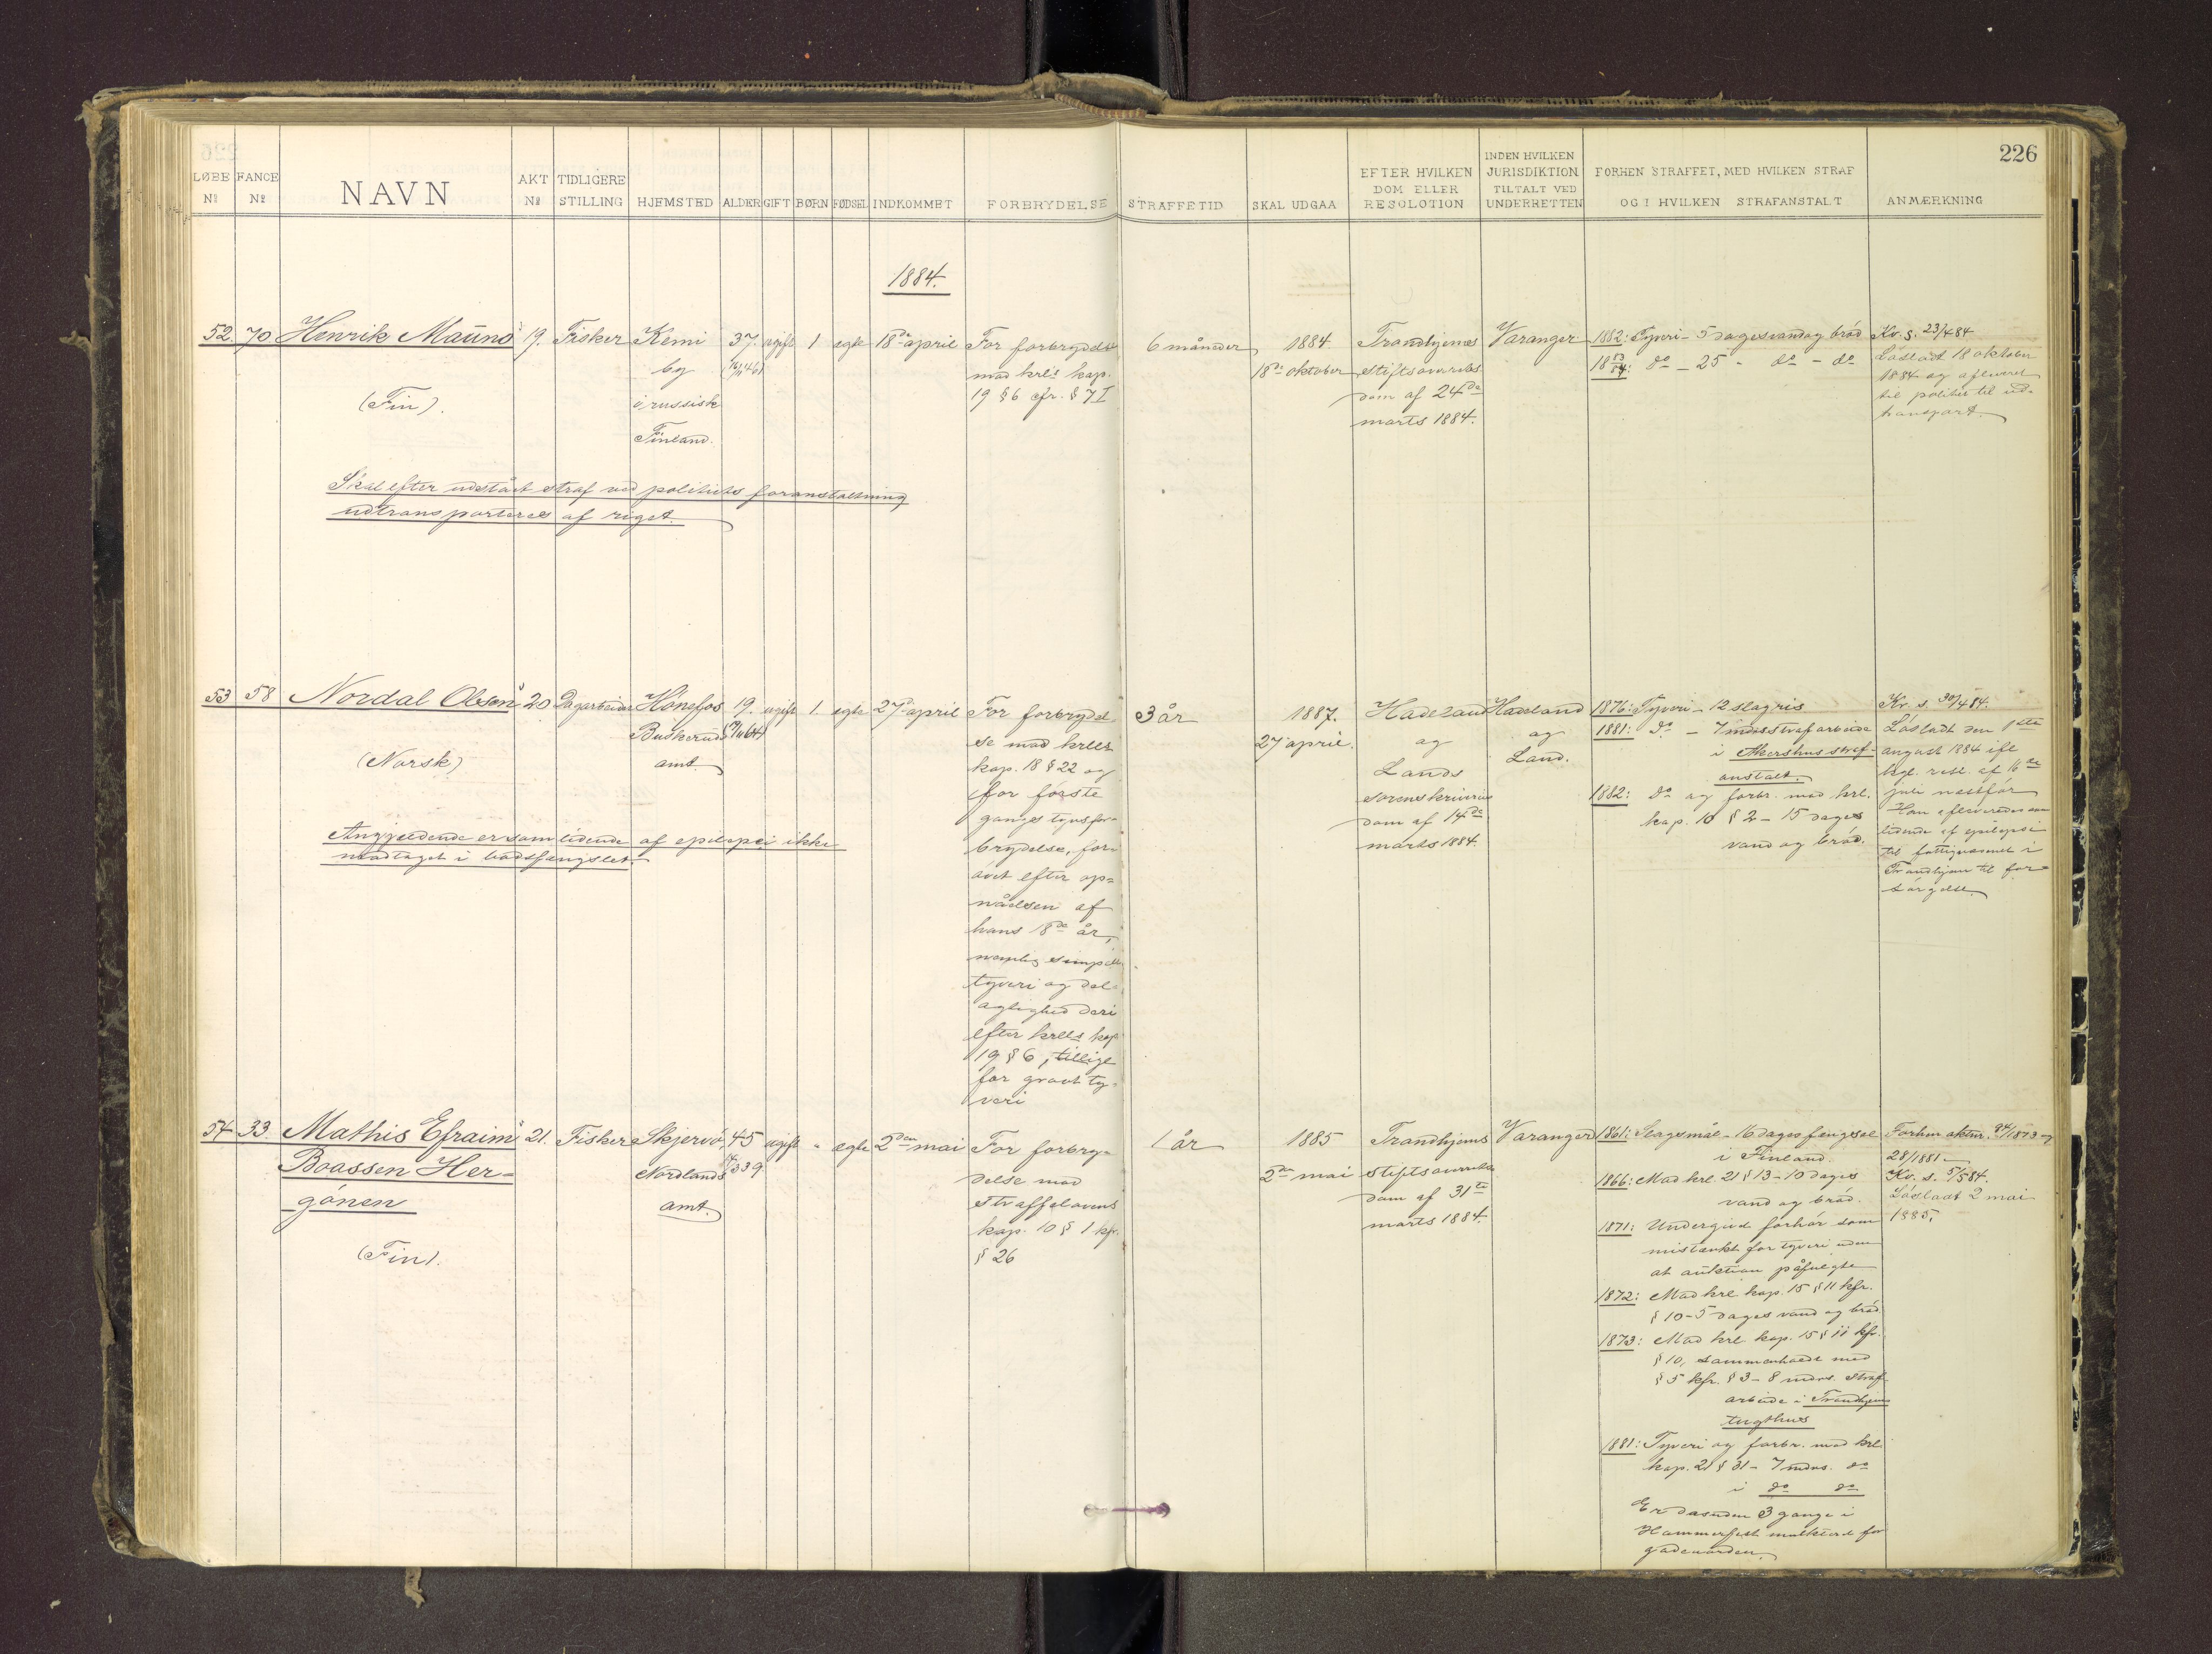 226
LØBE Nº
FANGE Nº
NAVN
AKT Nº
TIDLIGERE STILLING
HJEMSTED
ALDER
GIFT
BØRN
FØDSEL
INDKOMMET
FORBRYDELSE
STRAFFETID
SKAL UDGAA
EFTER HVILKEN DOM ELLER RESOLUTION
INDEN HVILKEN JURISDIKTION TILTALT VED UNDERRETTEN
FORHEN STRAFFET, MED HVILKEN STRAF OG I HVILKEN STRAFANSTALT
ANMÆRKNING
1884.
52.
70
Henrik Mauno
(Fin).
19.
Fisker
Kemi
by
i russisk
Finland.
37.
ugift
1
egte
18de april
For forbrydelse
mod krls kap.
19 § 6 cfr. § 7 I
6 måneder
1884
18de oktober
Trondhjems
stiftsoverrets
dom af 24de
marts 1884.
Varanger
1882: Tyveri - 5 dages vand og brød
18 83/84: do - 25 - do - do
Kv. s. 23/4 84
Løsladt 18 oktober
1884 og afleveret
til politiet til ud-
transport.
Skal efter udstået straf ved politiets foranstaltning
udtransporteres af riget.
53
58
Nordal Olsen
(Norsk)
20
Dagarbeider
Hønefos
Buskeruds
amt.
19.
ugift
1.
egte
27de april
For forbrydel-
se mod krls
kap. 18 § 22 og
for første
ganges tyvsfor-
brydelse, for-
øvet efter op-
nåelsen af
hans 18de år,
nemlig simpelt
tyveri og del-
agtighed deri
efter krls kap
19 § 6, tillige
for grovt ty-
veri
3 år
1887.
27 april.
Hadeland
og
Lands
sorenskriveries
dom af 14de
marts 1884.
Hadeland
og
Land.
1876: Tyveri - 12 slag ris
1881: do - 7 mdrs strafarbeide
i Akershus straf-
anstalt.
1882: do og forbr. mod krl.
kap. 10 § 2 - 15 dages
vand og brød.
Kv. s. 30/4 84.
Løsladt den 1ste
august 1884 ifl
kgl. resl. af 16de
juli næstfør
Han afleveredes som
lidende af epilepsi
til fattigvæsenet i
Trondhjem til for-
sørgelse.
Angjeldende er som lidende af epilepsi ikke
modtaget i bodsfængslet.
54
33.
Mathis Efraim
Boassen Her-
gønen
(Fin).
21.
Fisker
Skjervø,
Nordlands
amt.
45
ugift
-
egte
2den mai
For forbry-
delse mod
straffelovens
kap. 10 § 1 kfr.
§ 26
1 år
1885
2den mai
Trondhjems
stiftsoverrets
dom af 31te
marts 1884.
Varanger
1861: Slagsmål - 16 dages fengsel
i Finland.
1866: Mod krl. 21 § 13 - 10 dages
vand og brød.
1871: Undergivet forhør som
mistænkt for tyveri uden
at auktion påfulgte
1872: Mod krl kap. 15 § 11 kfr.
§ 10 - 5 dages vand og brød.
1873: Mod krl kap. 15 § 11 kfr.
§ 10, sammenholdt med
§ 5 kfr. § 3 - 8 mdrs. straf-
arbeide i Trondhjems
tugthus
1881: Tyveri og forbr. mod krl
kap. 21 § 31 - 7 mdrs. do
i do do
Er desuden 3 gange i
Hammerfest mulkteret for
gadeuorden.
Forhen aktnr. 1873 -
28/1881.
Kv. s. 5/5 84.
Løsladt 2 mai
1885.